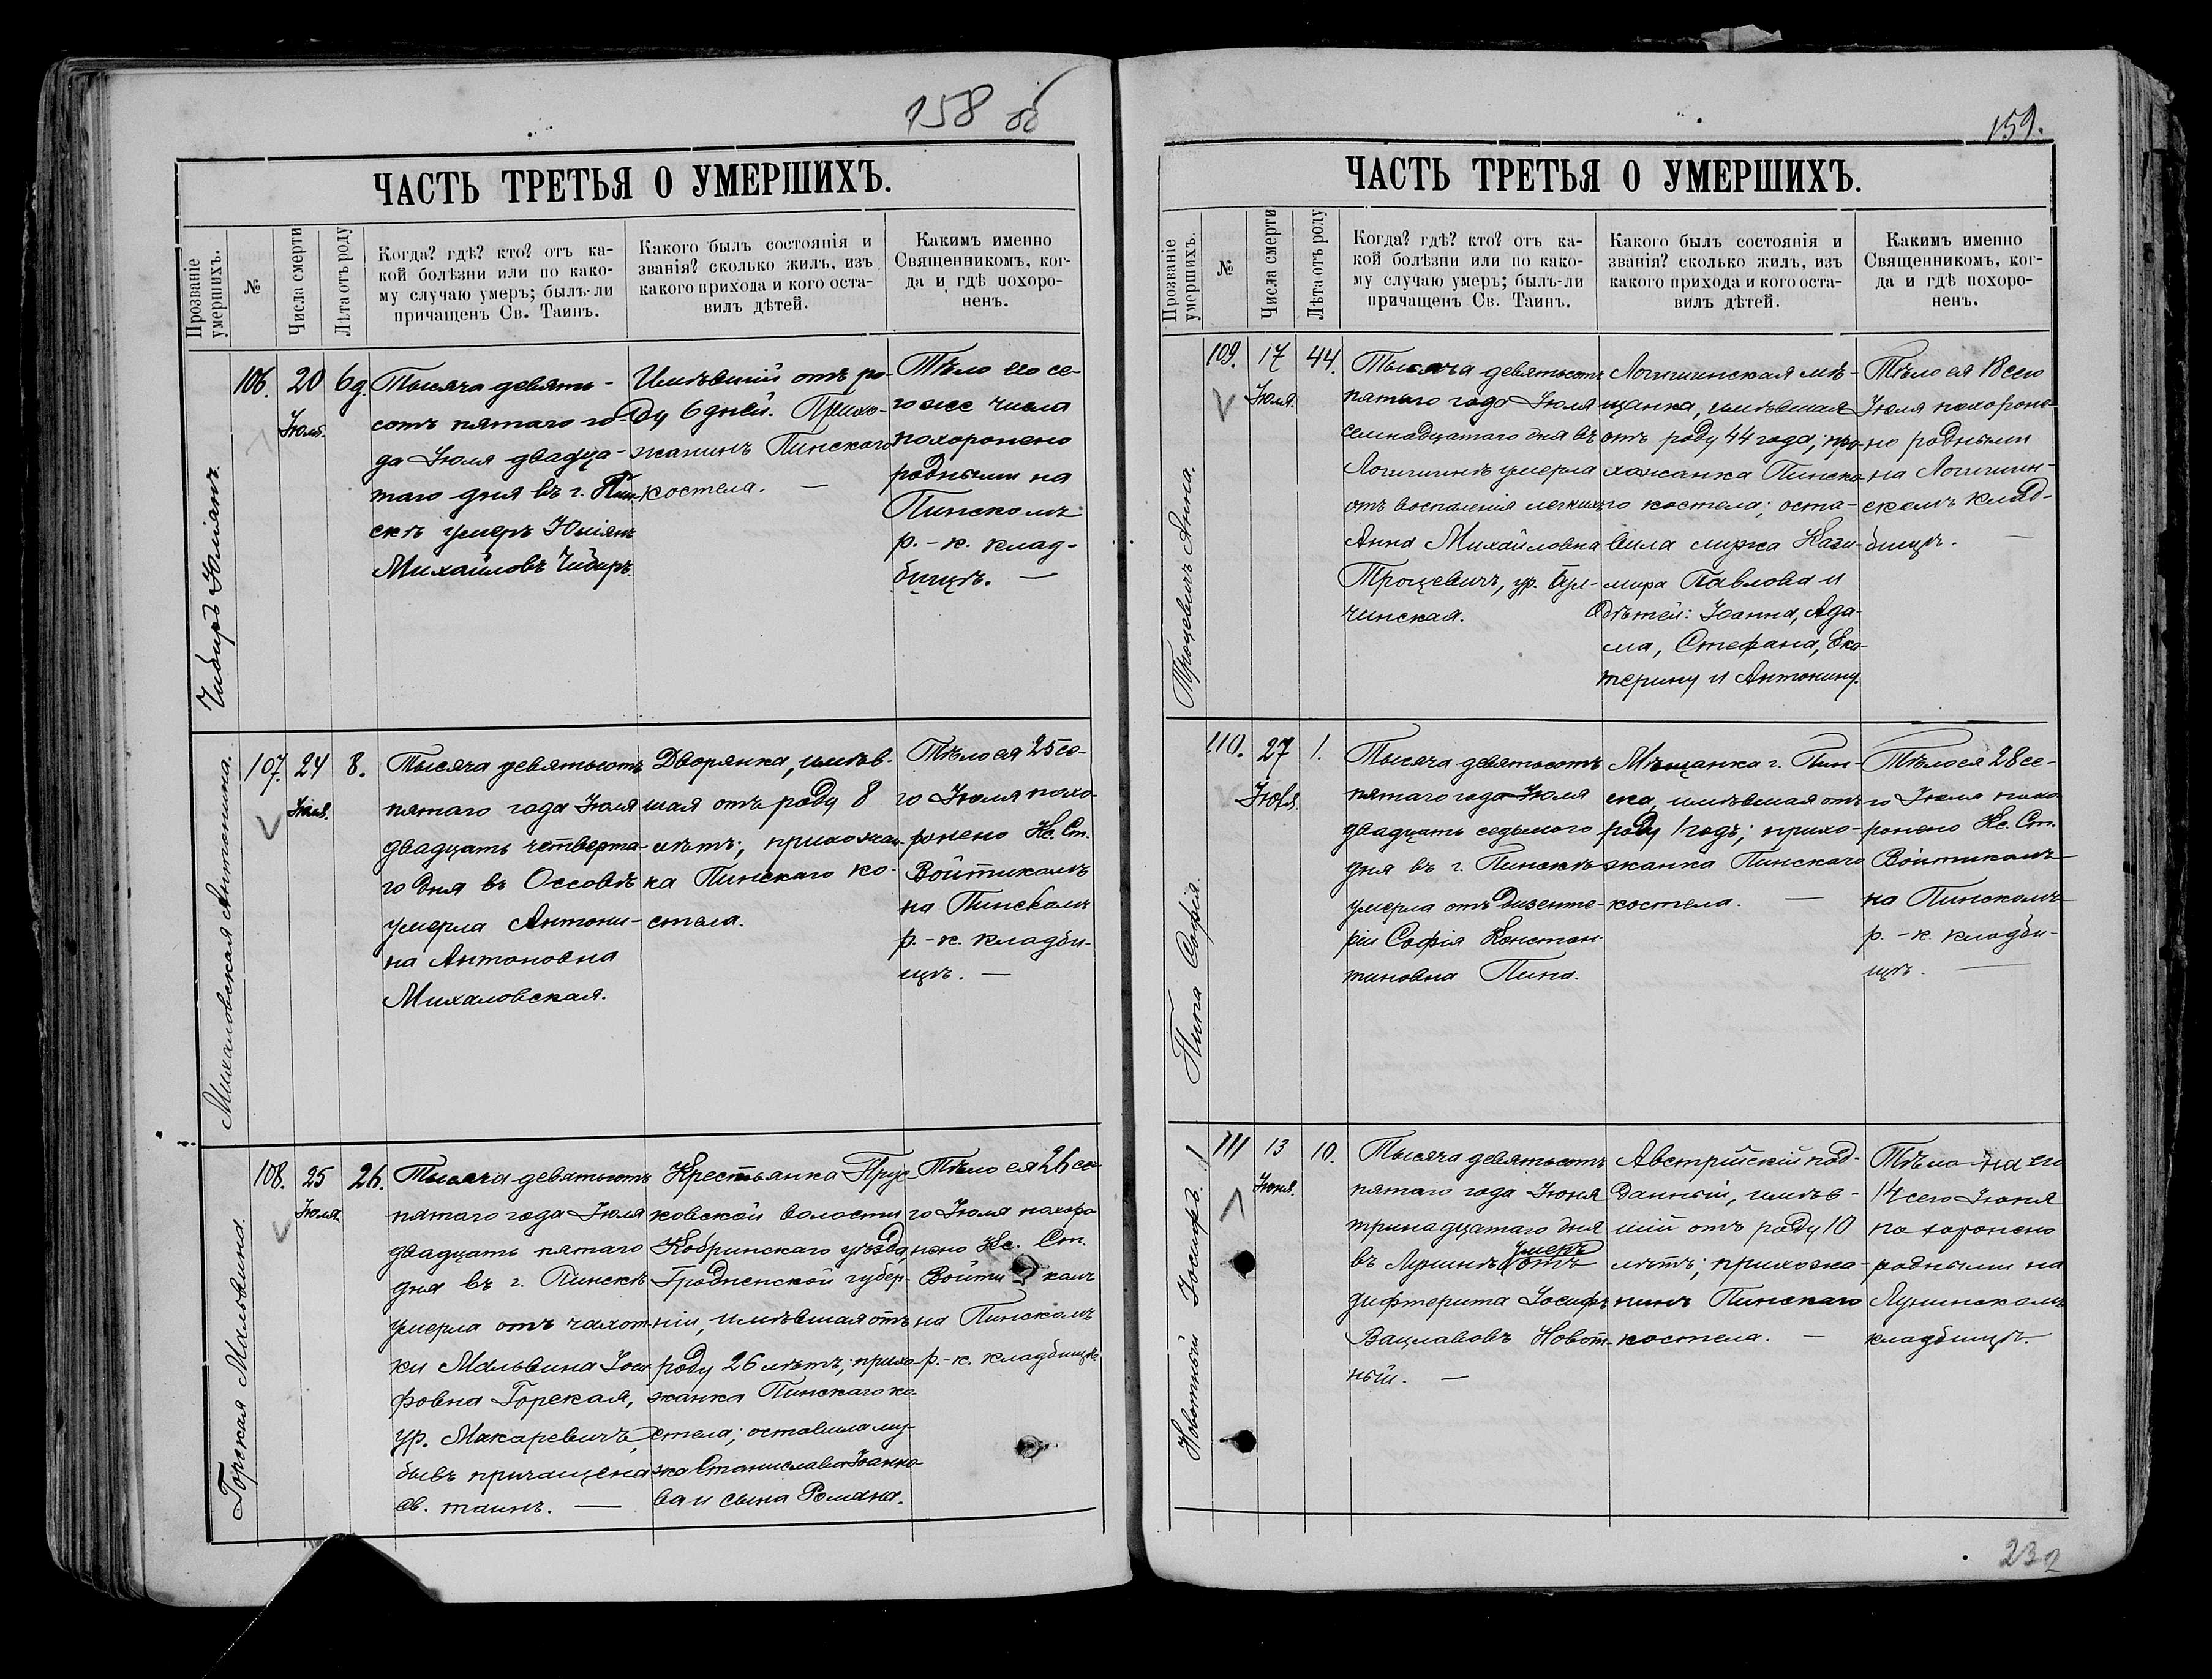 158 об
ЧАСТЬ ТРЕТЬЯ О УМЕРШИХЪ.
Прозваніе умершихъ.
№
Числа смерти
Лѣта отъ роду
Когда? гдѣ? кто? отъ ка-
кой болѣзни или по како-
му случаю умеръ; былъ-ли
причащенъ Св. Таинъ.
Какого былъ состоянія и
званія? сколько жилъ, изъ
какого прихода и кого оста-
вилъ дѣтей.
Какимъ именно
Священникомъ, ког-
да и гдѣ похоро-
ненъ.
Чибиръ Юліанъ.
106.
20
Іюля.
6д.
Тысяча девять-
сотъ пятаго го-
да Іюля двадца-
таго дня въ г. Пин-
скѣ умеръ Юліянъ
Михайловъ Чибиръ.
Имѣвшій отъ ро-
ду 6 дней. Прихо-
жанинъ Пинскаго
костела. —
Тѣло его се-
го же числа
похоронено
родными на
Пинскомъ
р.-к. клад-
бищѣ. —
Михаловская Антонина.
107.
24
Іюля.
8.
Тысяча девятьсотъ
пятаго года Іюля
двадцать четверта-
го дня въ Оссовѣ
умерла Антони-
на Антоновна
Михаловская.
Дворянка, имѣв-
шая отъ роду 8
лѣтъ; прихожан-
ка Пинскаго ко-
стела.
Тѣло ея 25 се-
го Іюля похо-
ронено Кс. Ст.
Войтикомъ
на Пинскомъ
р.-к. кладби-
щѣ. —
Горская Мальвина
108.
25
Іюля
26.
Тысяча девятьсотъ
пятаго года Іюля
двадцать пятаго
дня въ г. Пинскѣ
умерла отъ чахот-
ки Мальвина Іоси-
фовна Горская,
ур. Макаревичъ,
бывъ причащена
св. таинъ. —
Крестьянка Прус-
ковской волости
Кобринскаго уѣзда,
Гродненской губер-
ніи, имѣвшая отъ
роду 26 лѣтъ; прихо-
жанка Пинскаго ко-
стела; оставила му-
жа Станислава Іоанно-
ва и сына Романа.
Тѣло ея 26 се-
го Іюля похоро
нено Кс. Ст.
Войтикомъ
на Пинскомъ
р.-к. кладбищѣ.
159.
ЧАСТЬ ТРЕТЬЯ О УМЕРШИХЪ.
Прозваніе умершихъ.
№
Числа смерти
Лѣта отъ роду
Когда? гдѣ? кто? отъ ка-
кой болѣзни или по како-
му случаю умеръ; былъ-ли
причащенъ Св. Таинъ.
Какого былъ состоянія и
званія? сколько жилъ, изъ
какого прихода и кого оста-
вилъ дѣтей.
Какимъ именно
Священникомъ, ког-
да и гдѣ похоро-
ненъ.
Троцевичъ Анна.
109.
17
Іюля.
44.
Тысяча девятьсотъ
пятаго года Іюля
семнадцатаго дня въ
Логишинѣ умерла
отъ воспаленія легкихъ
Анна Михайловна
Троцевичъ, ур.
чинская.
Логишинская мѣ-
щанка, имѣвшая
отъ роду 44 года; при-
хожанка Пинска-
го костела; оста-
вила мужа Кази-
мира Павлова и
дѣтей: Іоанна, Ада-
ма, Стефана, Ека-
терину и Антонину.
Тѣло ея 18 сего
Іюля похороне-
но родными
на Логишин-
скомъ клад-
бищѣ. —
Пина Софія.
110.
27
Іюля.
1.
Тысяча девятьсотъ
пятаго года Іюля
двадцать седьмого
дня въ г. Пинскѣ
умерла отъ дизенте-
ріи Софія Констан-
тиновна Пина.
Мѣщанка г. Пин-
ска, имѣвшая отъ
роду 1 годъ; прихо-
жанка Пинскаго
костела. —
Тѣло ея 28 се-
го Іюля похо
ронено Кс. Ст.
Войтикомъ
на Пинскомъ
р.-к. кладби-
щѣ. —
Новотный Іосифъ.
111
13
Іюня.
10.
Тысяча девятьсотъ
пятаго года Іюня
тринадцатаго дня
въ Лунинѣ умеръ отъ
дифтерита Іосифъ
Вацлавовъ Новот-
ный. —
Австрійскій под-
данный, имѣв-
шій отъ роду 10
лѣтъ; прихожа-
нинъ Пинскаго
костела. —
Тѣло на его
14 сего Іюня
похоронено
родными на
Лунинскомъ
кладбищѣ.
232